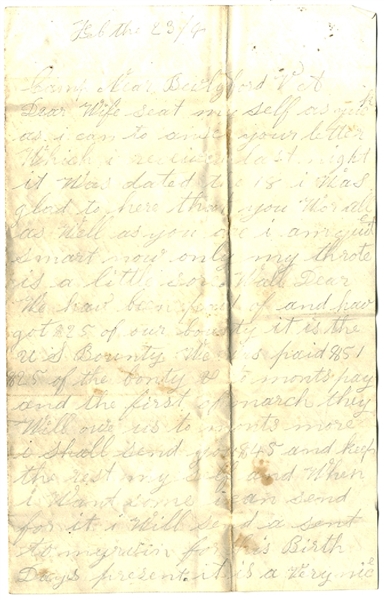 Feb the 23/4
Camp Near Bridgford VA
Dear Wife seat my self as
as i can to your letter
Which i last night
it Was dated the 18 i Was
glad to here that you Wer all
as Well as you are i am
smart now only my throte
is a little sore Wall Dear
We hav ben of and hav
got $25 of our bounty it is the
U S Bounty We Wer paid $51
$25 of the bonty & 2 monts pay
and the first of march they
Will owe us to monts more
i shall send you $45 and keep
the rest my self and When
i Want some i can send
for it i Will send a sent
to my for his Birth
Days present it is a Very nice